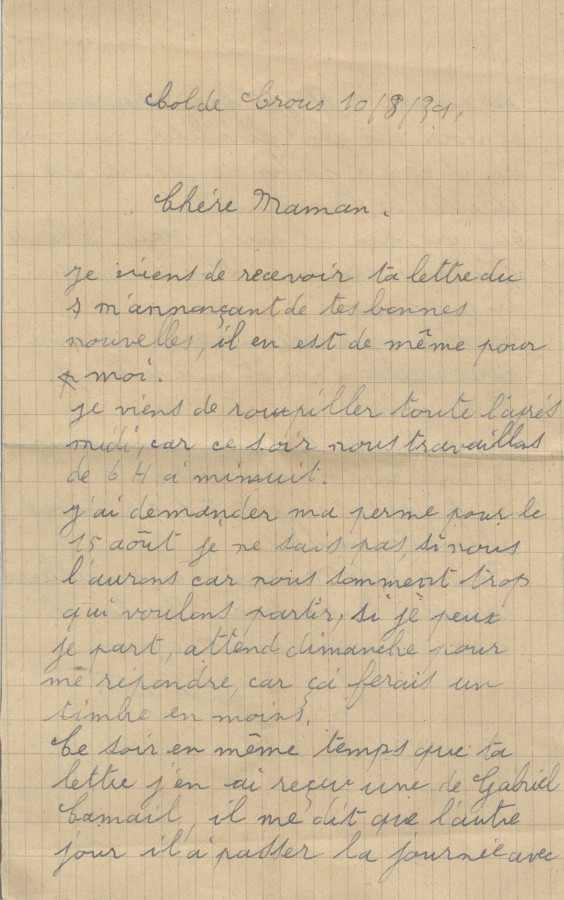 Col de Crous 10/8/39,
Chére Maman.
je viens de recevoir ta lettre du
m'annonçant de tes bonnes
nouvelles, il en est de même pour
moi.
je viens de roupiller toute l'aprés
midi, car ce soir nous travaillas
de 6 H a minuit.
j'ai demander ma perme pour le
15 août je ne sais pas, si nous
l'aurons car nous somment trop
qui voulons partir, si je peux
je part, attend dimanche pour
me répondre, car ça ferais un
timbre en moins.
Ce soir en même temps que ta
lettre j'en ai reçu une de Gabriel
Camail, il me dit que l'autre
jour il a passer la journée avec